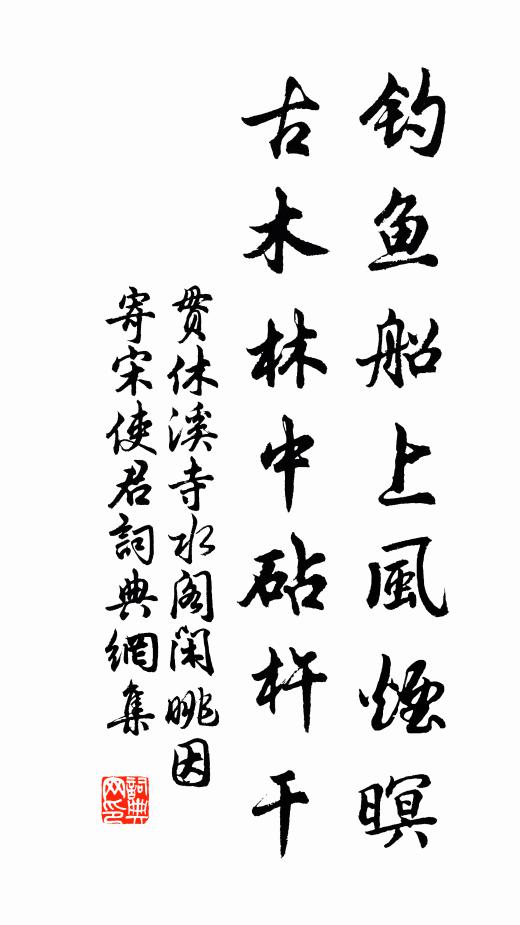 钓鱼船上風煙暝
古木林中砧杵干
貫休溪寺水阁閑眺因
寄宋使君詞典網集
詞典
网印